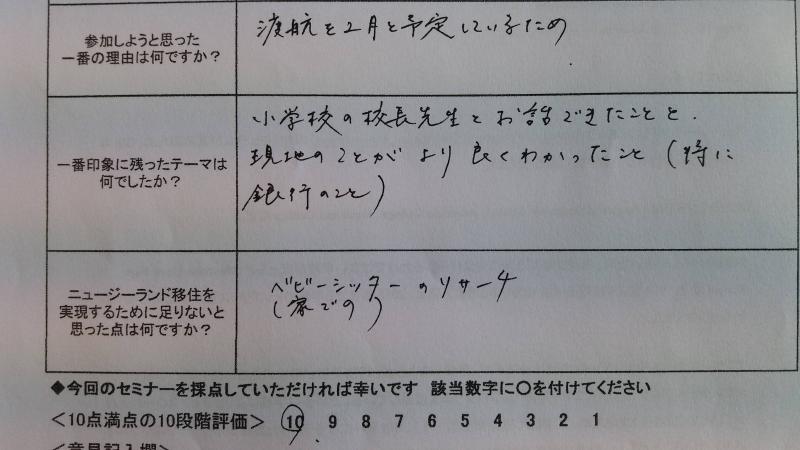 参加しようと思った
一番の理由は何ですか？
渡航を2月と予定しているため
一番印象に残ったテーマは
何でしたか？
小学校の校長先生とお話できたことと、
現地のことがより良くわかったこと（特に
銀行のこと）
ニュージーランド移住を
実現するために足りないと
思った点は何ですか？
ベビーシッターのリサーチ
（家での）
◆今回のセミナーを採点していただければ幸いです　該当数字に○を付けてください
＜10点満点の10段階評価＞　10　9　8　7　6　5　4　3　2　1
＜意見記入欄＞